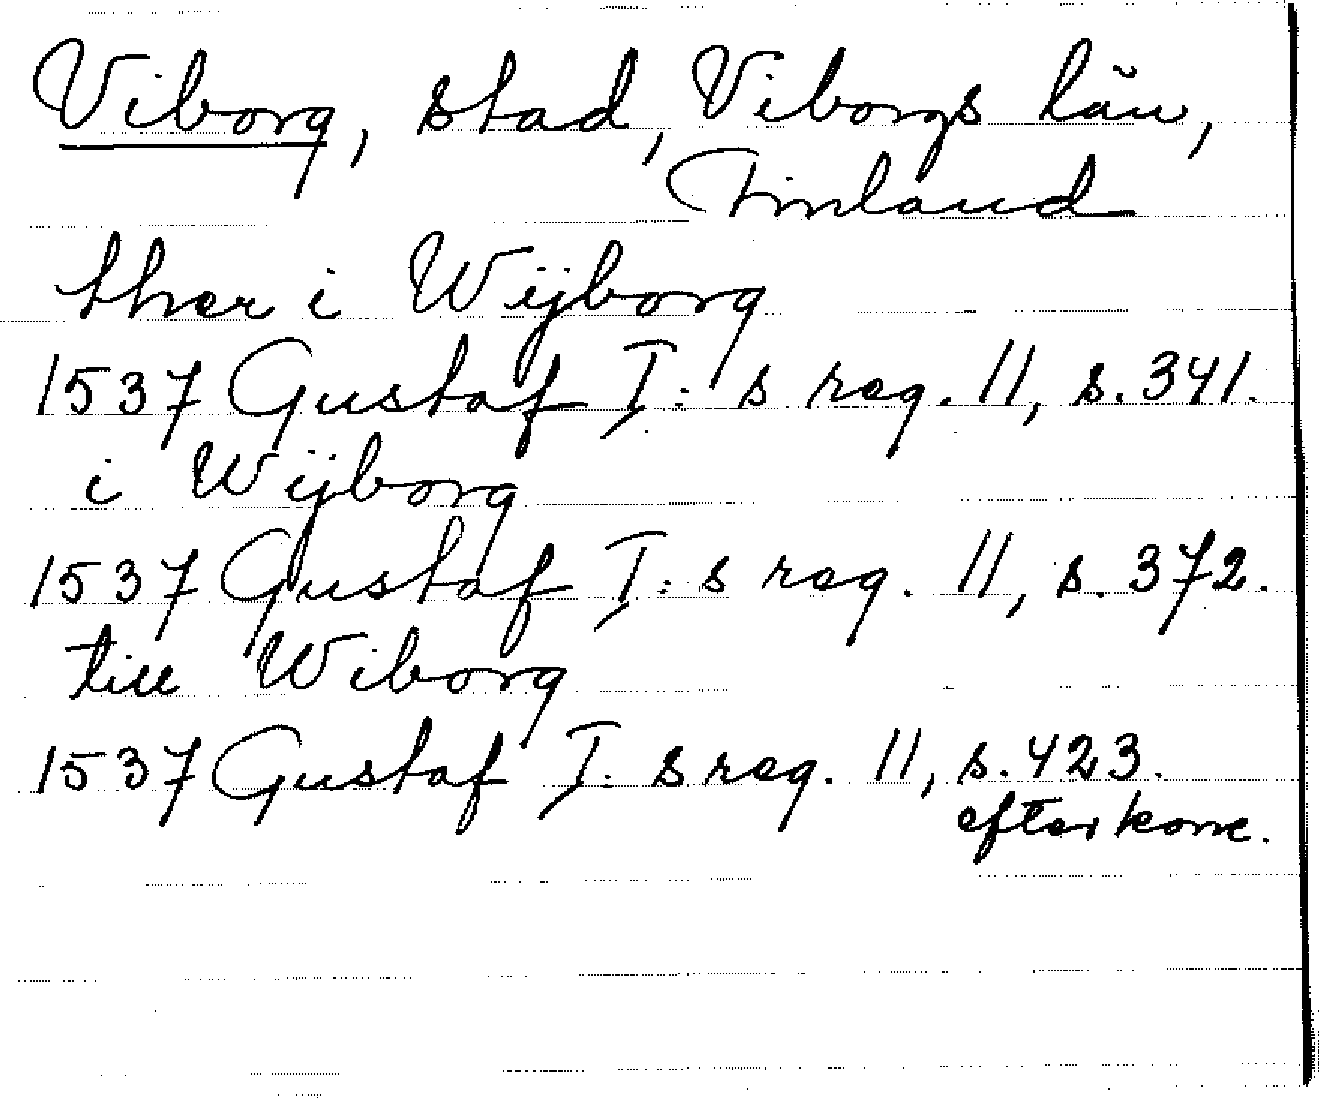 Viborg, stad, Viborgs län,
Finland
ther i Wijborg
1537 Gustaf I:s reg. 11, s. 341.
i Wijborg
1537 Gustaf I:s reg. 11, s. 372.
till Wiborg
1537 Gustaf I:s reg. 11, s. 423.
efter konc.